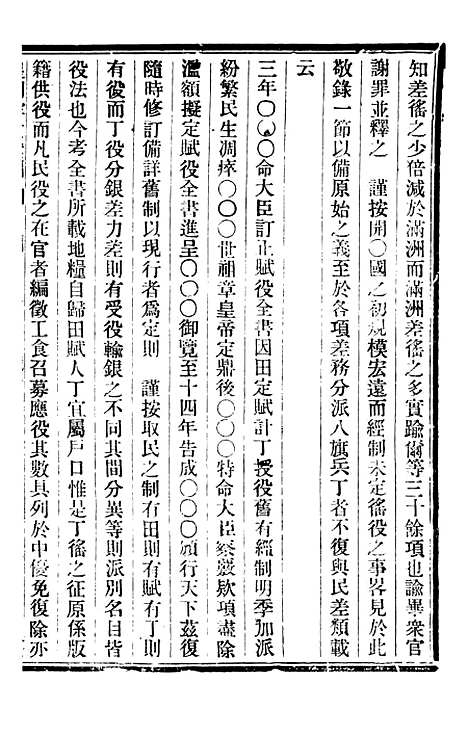 知差徭之少倍減於滿洲而滿洲差徭之多實踰爾等三十餘項也諭畢衆官
謝罪並釋之　謹按開〇國之初規模宏遠而經制未定徭役之事畧見於此
敬錄一節以備原始之義至於各項差務分派八旗兵丁者不復與民差類載
云
三年〇〇〇命大臣訂正賦役全書因田定賦計丁授役舊有經制明季加派
紛繁民生凋瘁〇〇〇世祖章皇帝定鼎後〇〇〇特命大臣察覈欵項盡除
濫額擬定賦役全書進呈〇〇〇御覽至十四年告成〇〇〇頒行天下茲復
隨時修訂備詳舊制以現行者爲定則　謹按取民之制有田則有賦有丁則
有役而丁役分銀差力差則有受役輸銀之不同其間分異等則派別名目皆
役法也今考全書所載地糧自歸田賦人丁宜屬戶口惟是丁徭之征原係版
籍供役而凡民役之在官者編徵工食召募應役其數具列於中優免復除亦